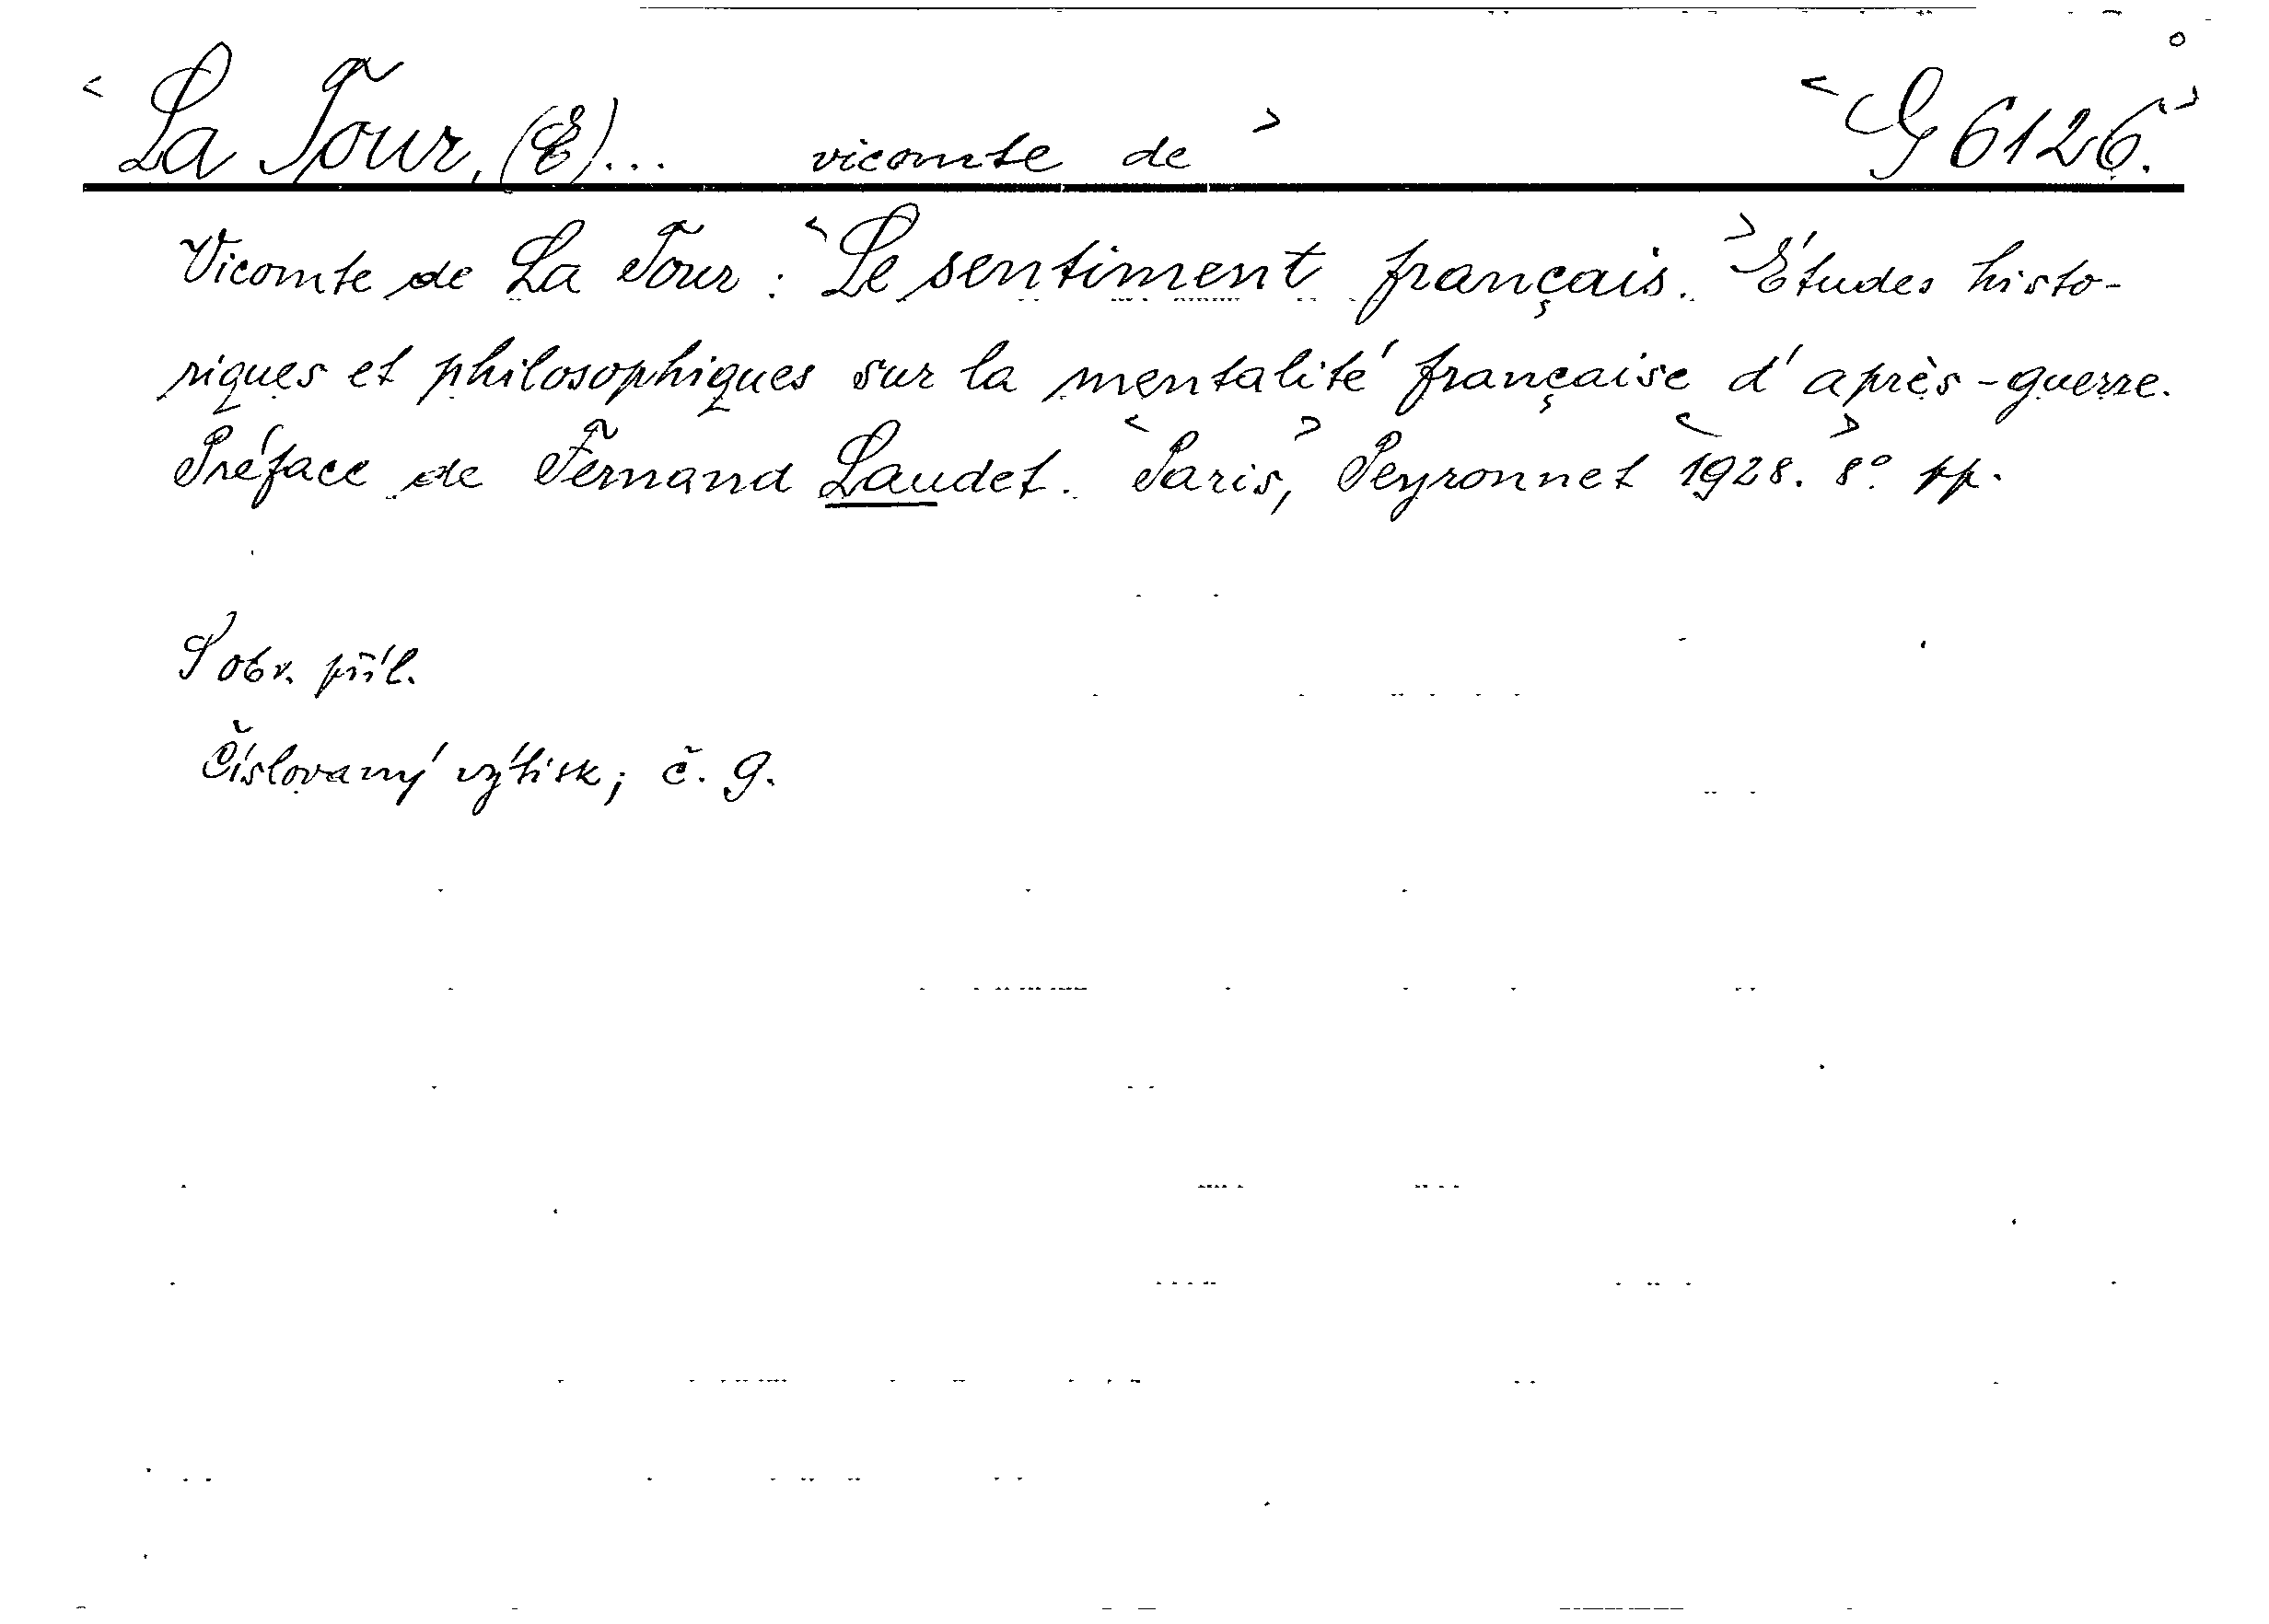 La Tour, (E)... vicomte de G 6126.
Vicomte de La Tour: Le sentiment français. Études histo-
riques et philosophiques sur la mentalité française d'après-guerre.
Préface de Fernand Laudet. Paris, Peyronnet 1928. 8° pp.
S obr. příl.
Číslovaný výtisk; č. 9.